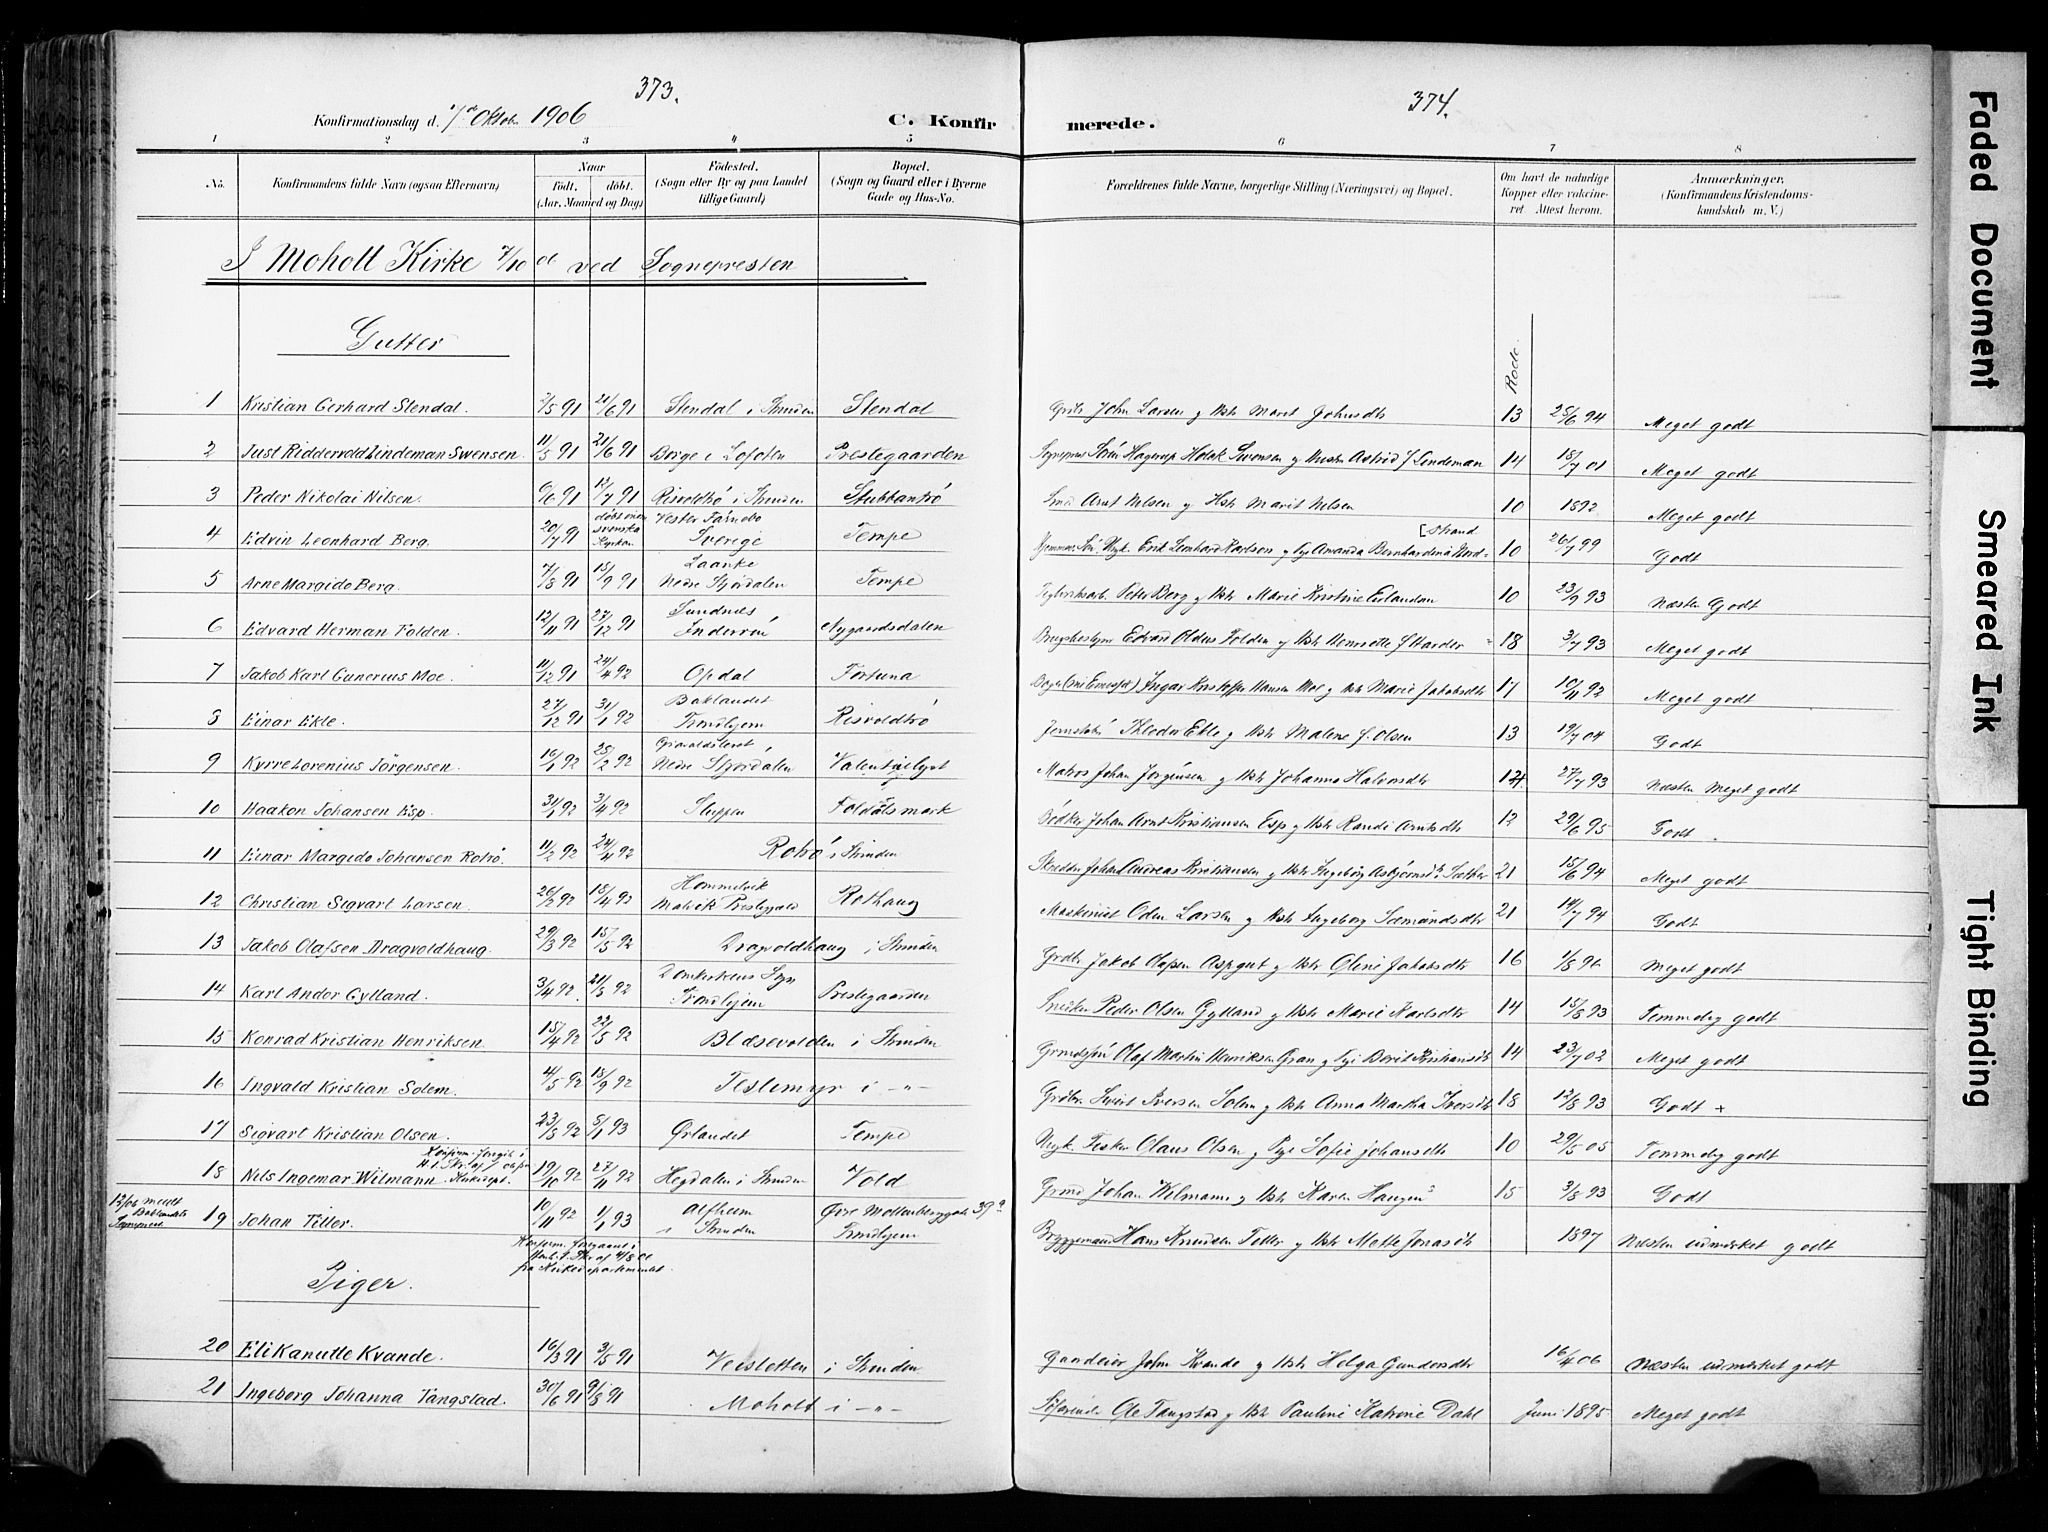 373.
374.
Konfirmationsdag d. 7/de Oktober 1906
C. Konfirmerede.
1 2 3 4 5 6 7 8
No. Konfirmandens fulde Navn (ogsaa Efternavn) Naar født. døbt. (Aar, Maaned og Dag) Födested. (Sogn eller By og paa Landet tillige Gaard) Bopæl. (Sogn og Gaard eller i Byerne Gade og Hus-No. Forældrenes fulde Navne, borgerlige Stilling (Næringsvei) og Bopæl. Om havt de naturlige Kopper eller vaccineret Attest herom. Anmærkninger. (Konfirmandens Kristendomskundskab m. V.)
I Moholt Kirke 7/10 06 ved Sognepresten
Gutter
Rode.
1 Kristian Gerhard Stendal. 2/5 91 21/6 91 Stendal i Strinden Stendal John Larsen og Hstr Marit Johnsdtr 13 25/6 94 Meget godt
2 Just Riddervold Lindeman Swensen. 11/5 91 21/6 91 Borge i Lofoten Prestegaarden Sognepres Sörén Hagerup Holck Svensen og Hustru Astrid J Lindeman 14 18/7 01 Meget godt
3 Peder Nikolai Nilsen. 6/6 91 12/7 91 Risvoldtrö i Strinden Stubbantrö Smed Arnt Nilsen og Hstr Marit Nilsen 10 1892 Meget godt
4 Edvin Leonhard Berg. 20/7 91 döbt i den svenska Kyrkan Vester Färnebo Sverige Tempe Erik Leonhard Karlson og Pige Amanda Bernhardina Nord= [strand 10 26/7 99 Godt
5 Arne Margido Berg. 7/8 91 13/9 91 Laanke Nedre Stjördalen Tempe Teglverksarb. Peter Berg og Hstr Marie Kristine Erlandsen 10 23/9 93 Næsten Godt
6 Edvard Herman Folden. 12/11 91 27/12 91 Sundnes Inderröen Nygaardsdalen Brugsbestyrer Edvard Oldus Folden og Hstr Henriette J Harder 18 3/7 93 Meget godt
7 Jakob Karl Gunerius Moe. 11/12 91 24/4 92 Opdal Fortuna Ingar Kristoffer Hansen Moe og Hstr Marie Jakobsdtr 17 10/11 92 Meget godt
8 Einar Ekle. 27/12 91 31/1 92 Baklandet Trondhjem Risvoldtrö Jernstöber Theodor Ekle og Hstr Malene J. Olsen 13 19/7 04 Godt
9 Kyrre Lorenius Jörgensen. 16/1 92 28/2 92 Nedre Stjördalen Valentinlyst Matros Johan Jörgensen og Hstr Johanna Halvorsdtr 14. 27/7 93 Næsten meget godt
10 Haakon Johansen Esp. 31/1 92 3/4 92 Sluppen Foldölsmark Bödker Johan Arnt Kristiansen Esp og Hstr Randi Arntsdtr 12 29/6 95 Godt.
11 Einar Margido Johansen Rotrö. 11/2 92 24/4 92 Rotrö i Strinden Skrædder Johan Andreas Kristiansen og Hstr Ingeborg Asbjörnsdtr Sæther 21 15/6 94 Meget godt
12 Christian Sigvart Larsen. 26/2 92 18/4 92 Hommelvik Malvik Prestegjeld Rothaug Maskinist Oden Larsen og Hstr Ingeborg Sæmundsdtr 21 14/7 94 Godt
13 Jakob Olafsen Dragvoldhaug. 29/3 92 15/5 92 Dragvoldhaug i Strinden Grdbr Jakob Olafsen Aspgut og Hstr Oline Jakobsdtr 16 1/8 96 Meget godt
14 Karl Andor Gylland. 3/4 92. 21/5 92 Domkirkens Sogn Trondhjem Prestegaarden Snedker Peder Olsen Gylland og Hstr Marie Karlsdtr 14 15/8 93 Temmelig godt
15 Konrad Kristian Henriksen 18/4 92 22/5 92 Blæsevolden i Strinden Olaf Martin Henriksen Gran og Pige Berit Kristiansdtr 14 23/7 02 Meget godt
16 Ingvald Kristian Solem. 4/5 92 18/9 92 Teslimyr i -"- Sivert Iversen Solem og Hstr Anna Martha Iversdtr 18 12/8 93 Godt +
17 Sigvart Kristian Olsen. 23/5 92 8/1 93 Ørlandet Tempe Ungk. Fisker Olaus Olsen og Pige Sofie Johansdtr 10 29/5 05 Temmelig godt
18 Nils Ingemar Wilmann. 19/10 92 27/11 92 Hegdalen i Strinden Vold Johan Wilmann og Hstr Karen Haugen 15 3/8 93 Godt
19 Johan Tiller. 10/11 92 1/1 93 Alfheim i Strinden Øvre Möllenberggade 39 a Trondhjem Bryggemand Hans Knudsen Tiller og Hstr Mette Jonasdtr 1897 Næsten udmerket godt
Konfirm. foregaaet i Henh. t. Skr. af 4/8 06
fra Kirkedepartementet.
Piger.
20 Eli Kanutte Kvande. 16/3 91 3/5 91 Veisletten i Strinden Gaardeier John Kvande og Hstr Helga Gundersdtr 16/4 06 Næsten udmerket godt
21 Ingeborg Johanna Tangstad. 30/6 91 9/8 91 Moholt i -"- Söfarende Ole Tangstad og Hstr Pauline Katrine Dahl Juni 1895 Meget godt
Faded Document
Smeared Ink
Tight Binding